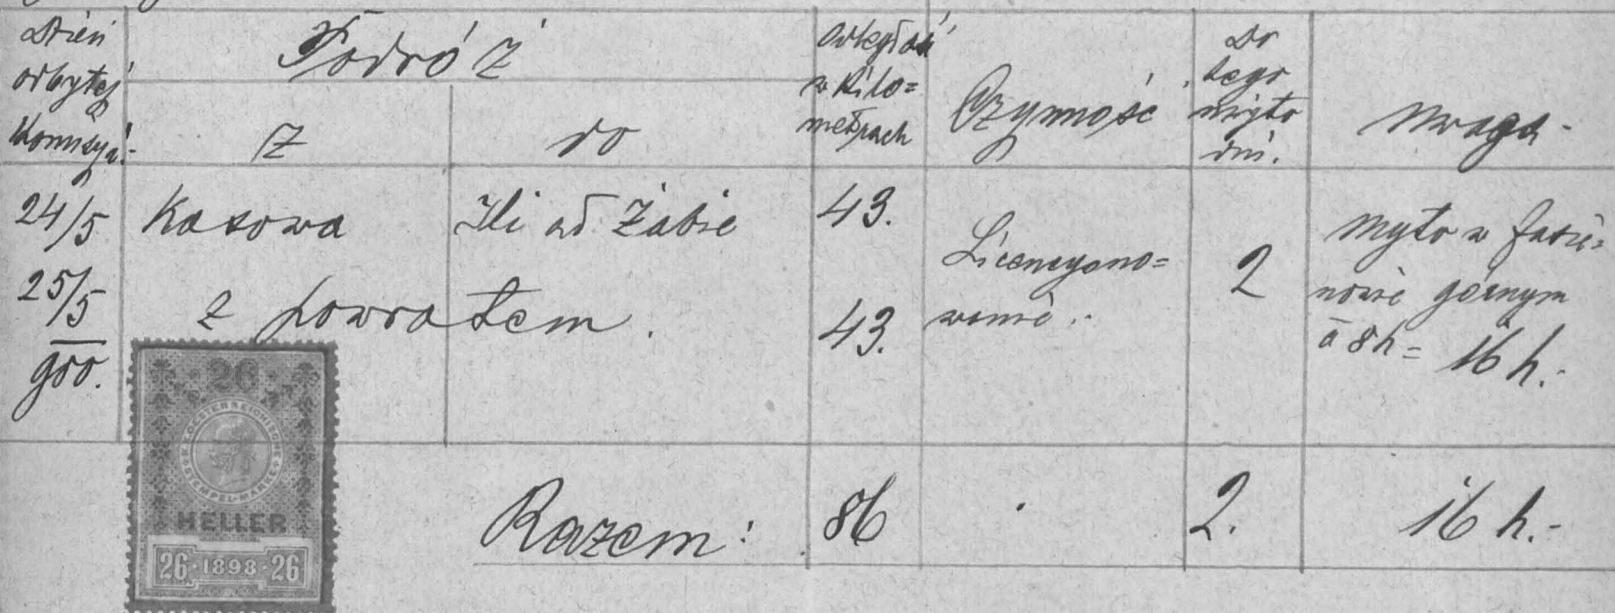 Dzień
odbytej
Komisyi.
Podróż
z
do
Odległość
w Kilo=
metrach
Czynność
Do
tego
myto
dni.
Uwaga.
24/5
Kosowa
Ili ad Żabie
43.
Licencyono=
wanie.
2
Myto w Jasie=
nowie górnym
à 8h = 16 h.-
25/5
z powrotem.
43.
900.
26
K.K. OESTERREICHISCHE
STEMPEL-MARKE
HELLER
26·1898·26
Razem:
86
2.
16 h.-